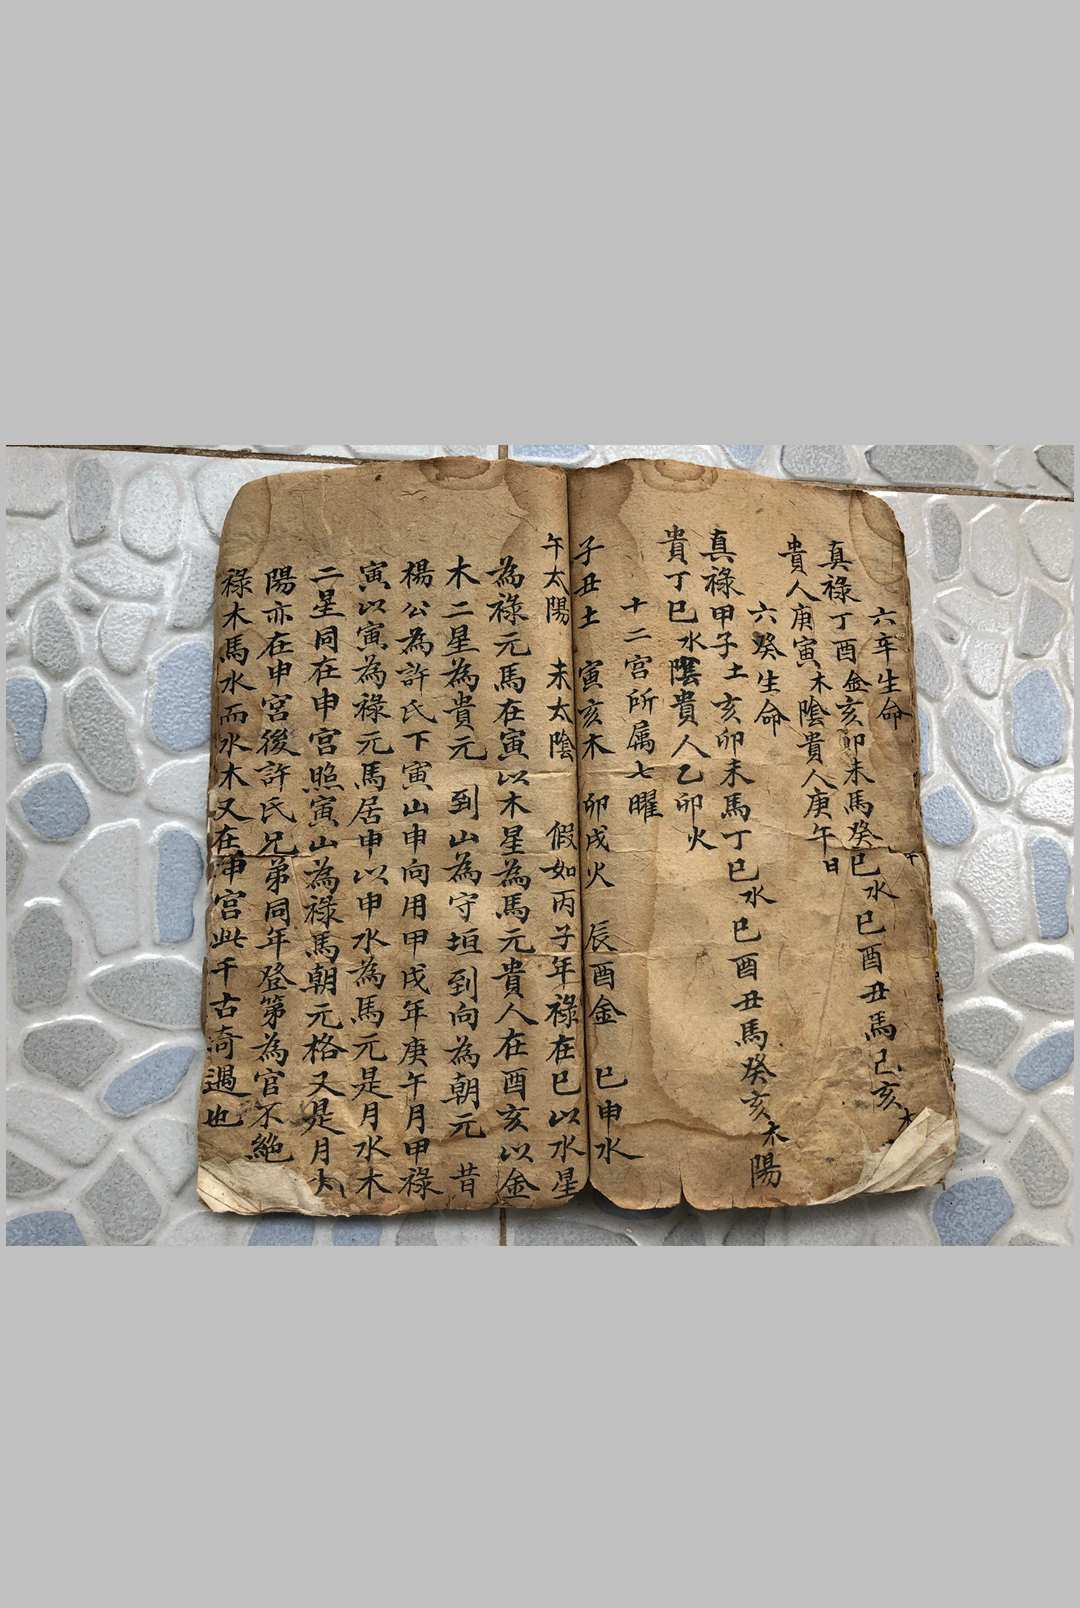 六辛生命
真祿丁酉金亥卯未馬癸巳水巳酉丑馬己亥木
貴人庚寅木陰貴人庚午日
六癸生命
真祿甲子土亥卯未馬丁巳水巳酉丑馬癸亥木陽
貴丁巳水陰貴人乙卯火
十二宮所属七曜
子丑土 寅亥木 卯戌火 辰酉金 巳申水
午太陽 未太陰 假如丙子年祿在巳以水星
為祿元馬在寅以木星為馬元貴人在酉亥以金
木二星為貴元 到山為守垣到向為朝元 昔
楊公為許氏下寅山申向用甲戌年庚午月甲祿
寅以寅為祿元馬居申以申水為馬元是月水木
二星同在申宮照寅山為祿馬朝元格又是月太
陽亦在申宮後許氏兄弟同年登第為官不絕
祿木馬水而水木又在申宮此千古奇遇也